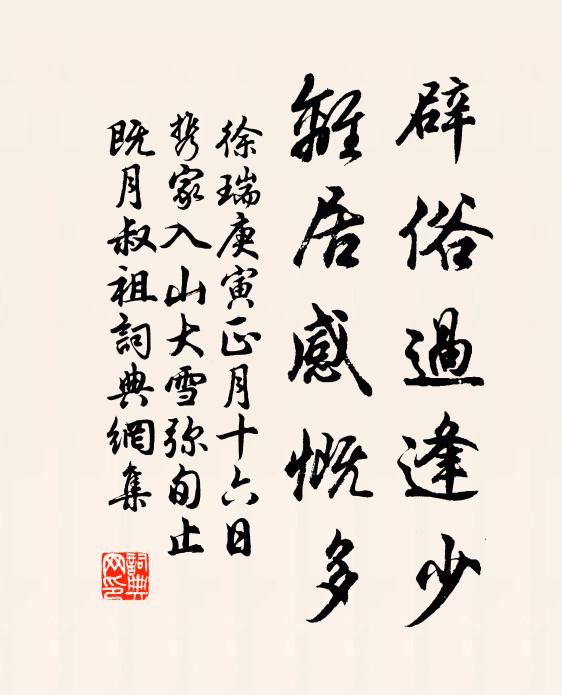 辟俗過逢少
離居感慨多
徐瑞庚寅正月十六日
携家入山大雪弥旬止
既月叔祖詞典網集
詞典网印